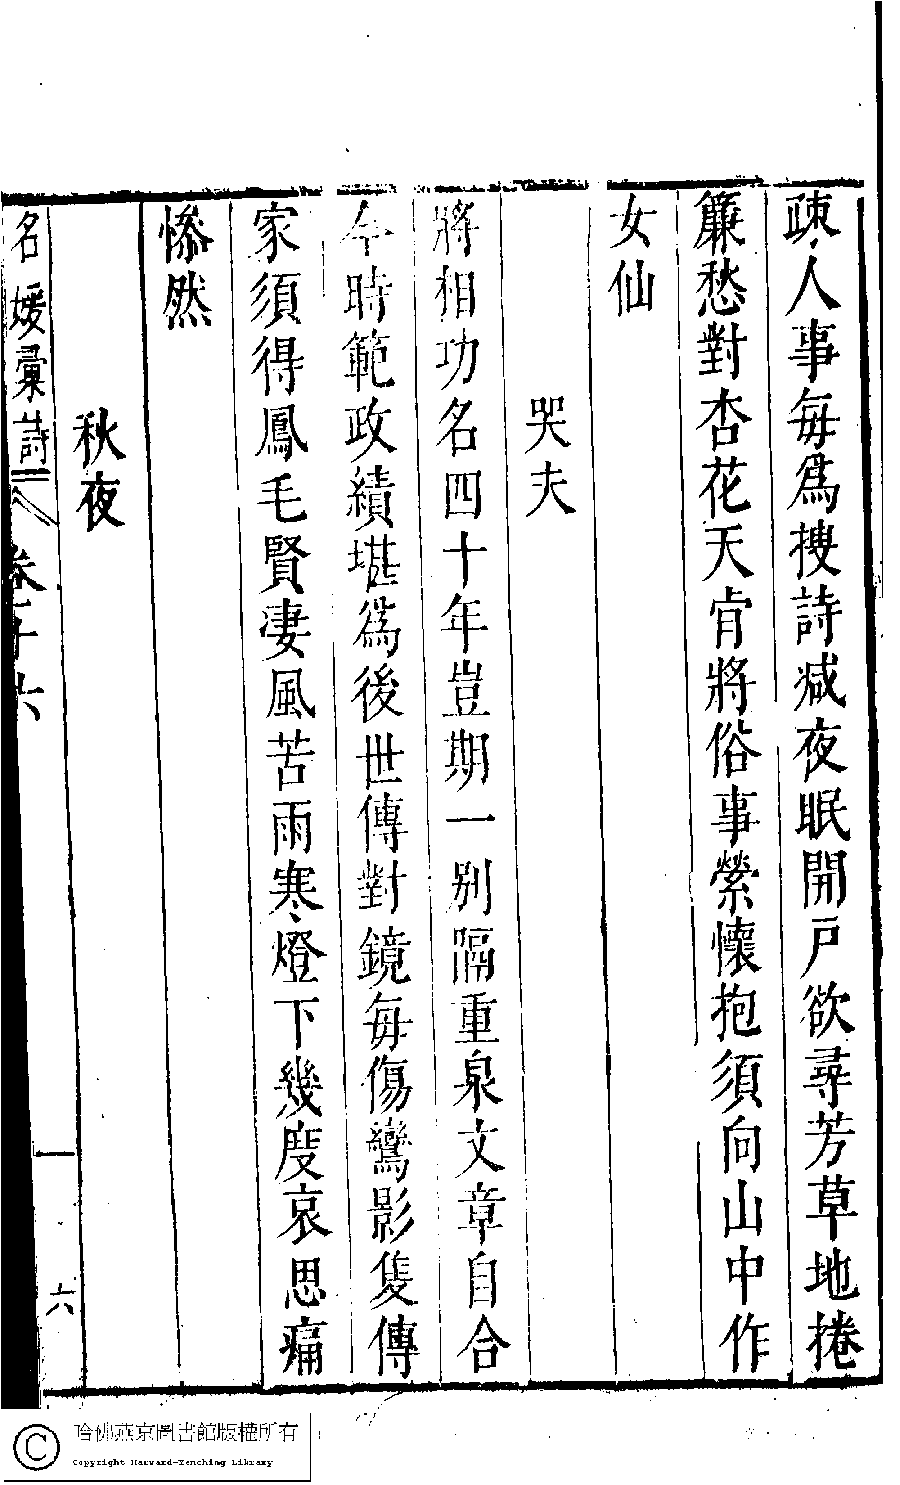 疎人事每爲搜詩减夜眠開戸欲尋芳草地捲
簾愁對杏花天肯將俗事縈懷抱須向山中作
女仙
哭夫
將相功名四十年豈期一别隔重泉文章自合
今時範政績堪爲後世傳對鏡每傷鸞影隻傳
家須得鳳毛賢凄風苦雨寒燈下幾度哀思痛
慘然
秋夜
名媛彙詩
六
哈佛燕京圖書館版權所有
Copyright Harvard-Yenching Library